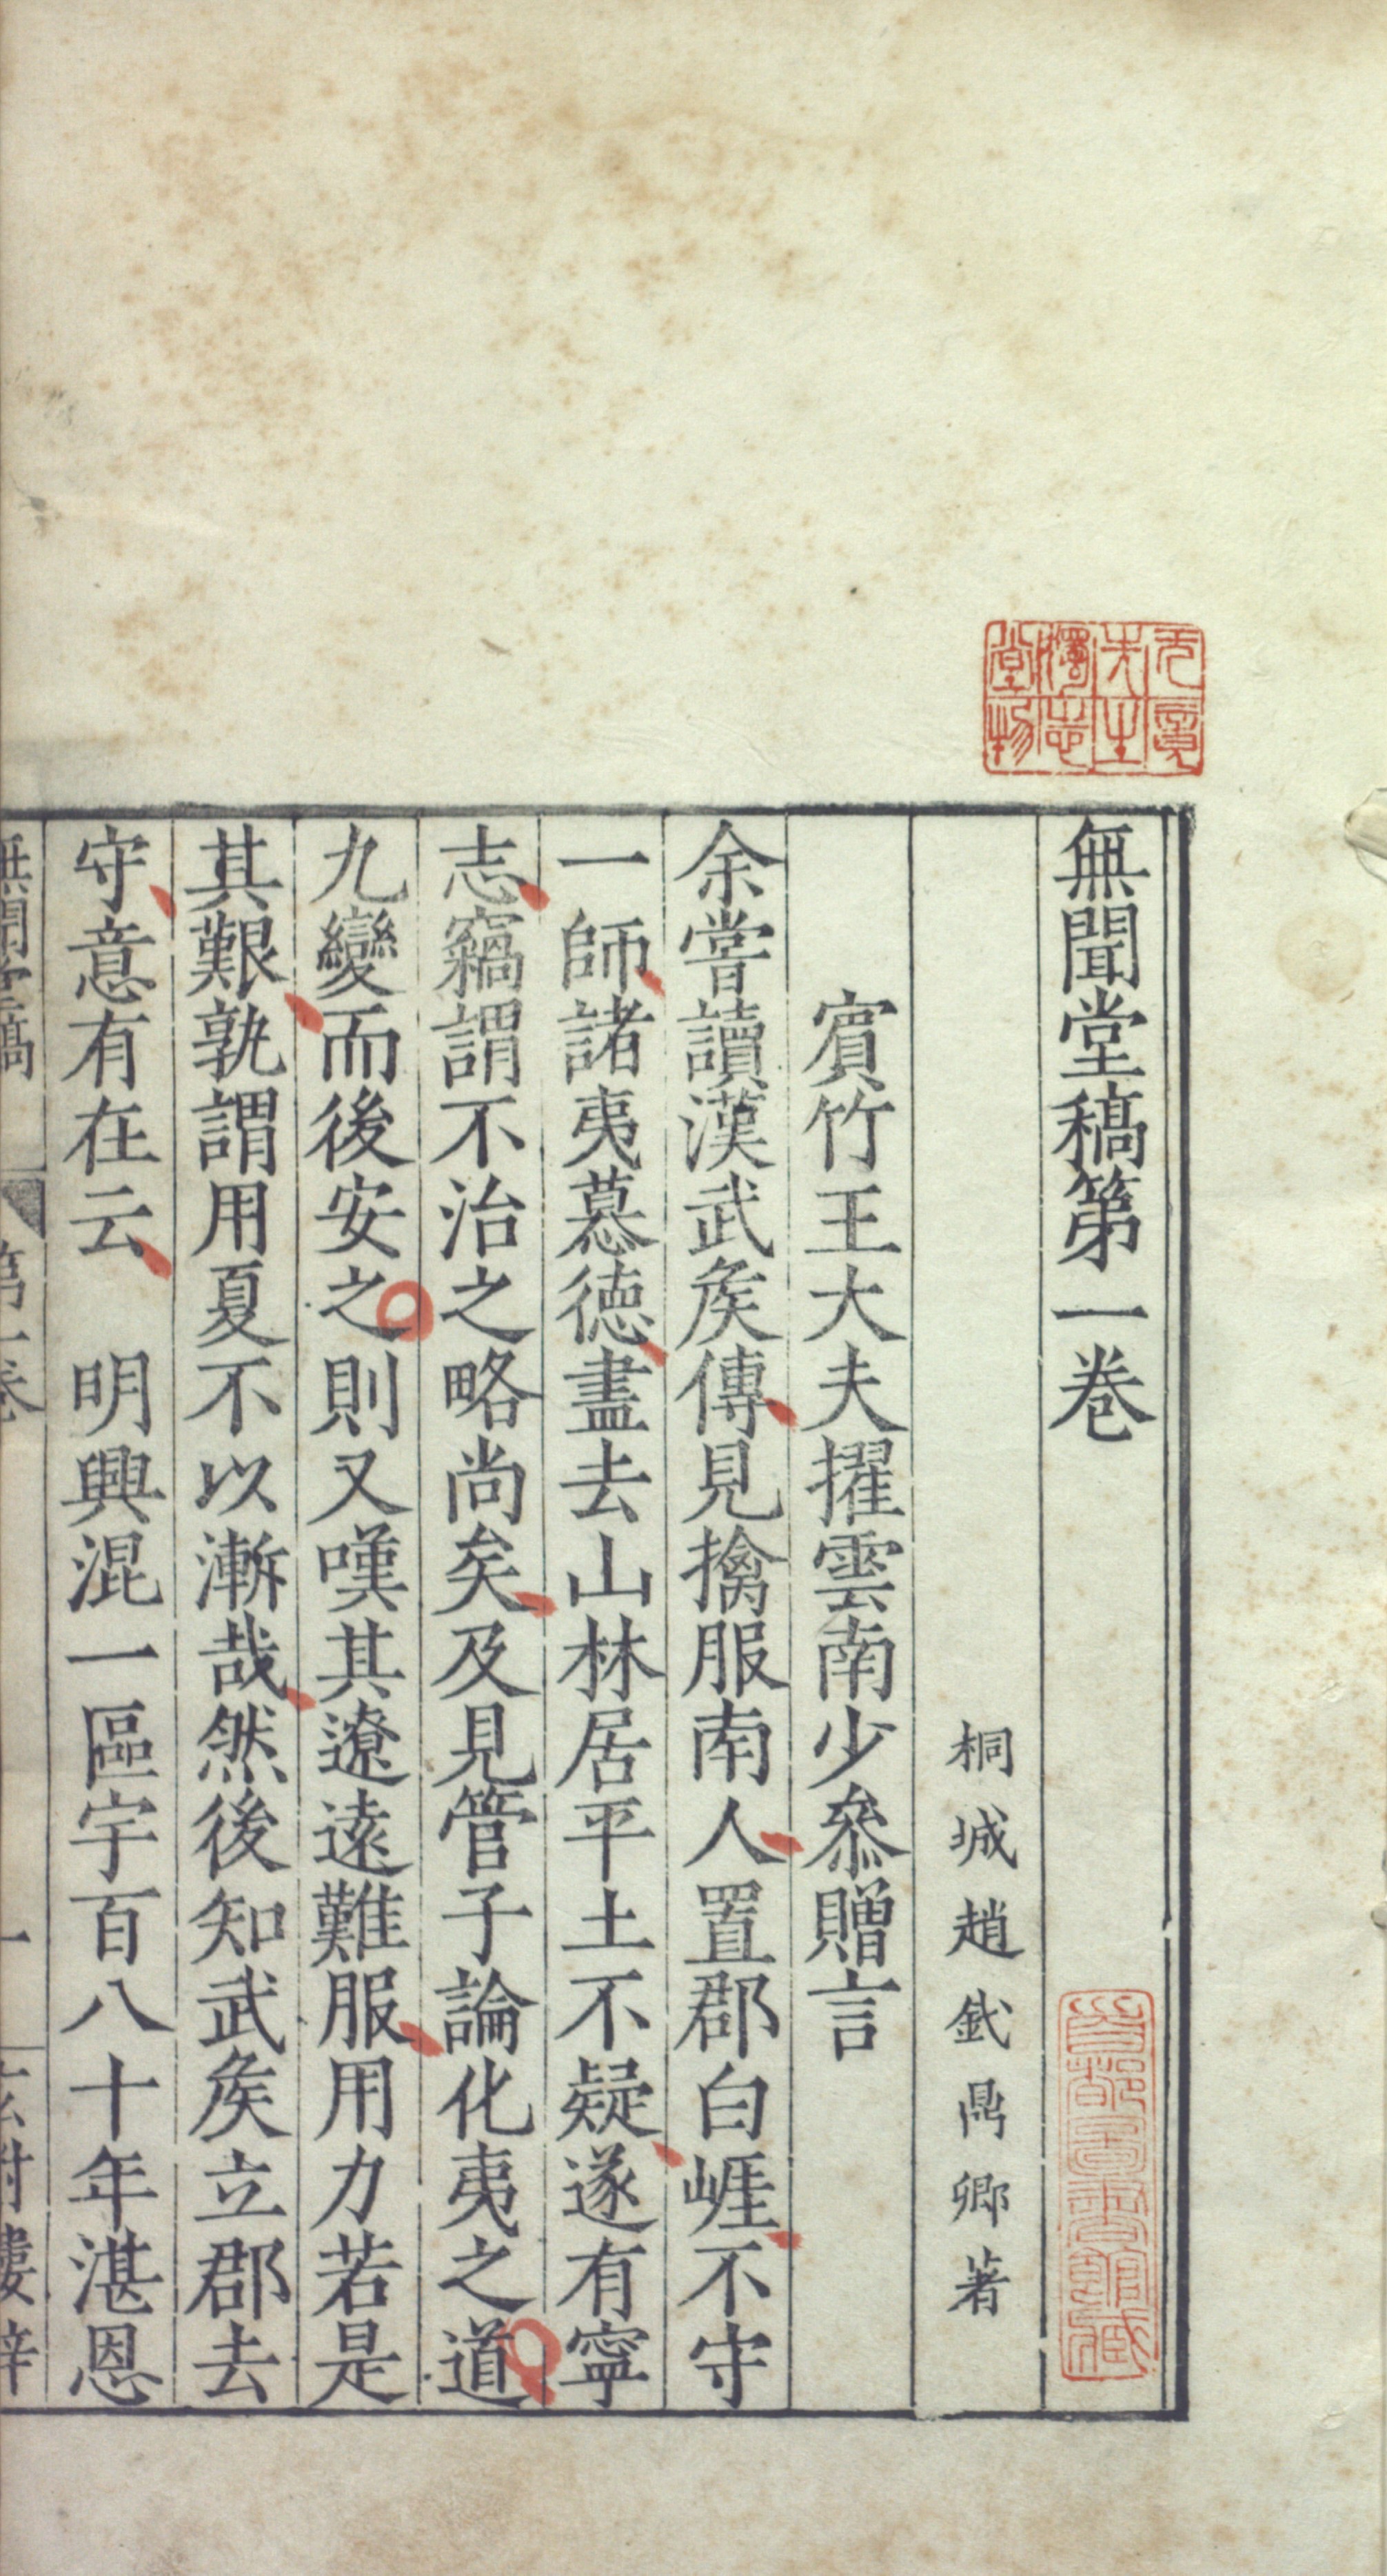 無聞堂稿第一卷
桐城趙釴鼎卿著
賔竹王大夫擢雲南少叅贈言
余嘗讀漢武矦傳見擒服南人置郡白崕不守
一師諸夷慕德盡去山林居平土不疑遂有寧
志竊謂不治之略尚矣及見管子論化夷之道
九變而後安之則又嘆其遼遠難服用力若是
其艱孰謂用夏不以漸哉然後知武矦立郡去
守意有在云　明興混一區宇百八十年湛恩
無聞堂稿　第一卷　一
首都圖書館藏